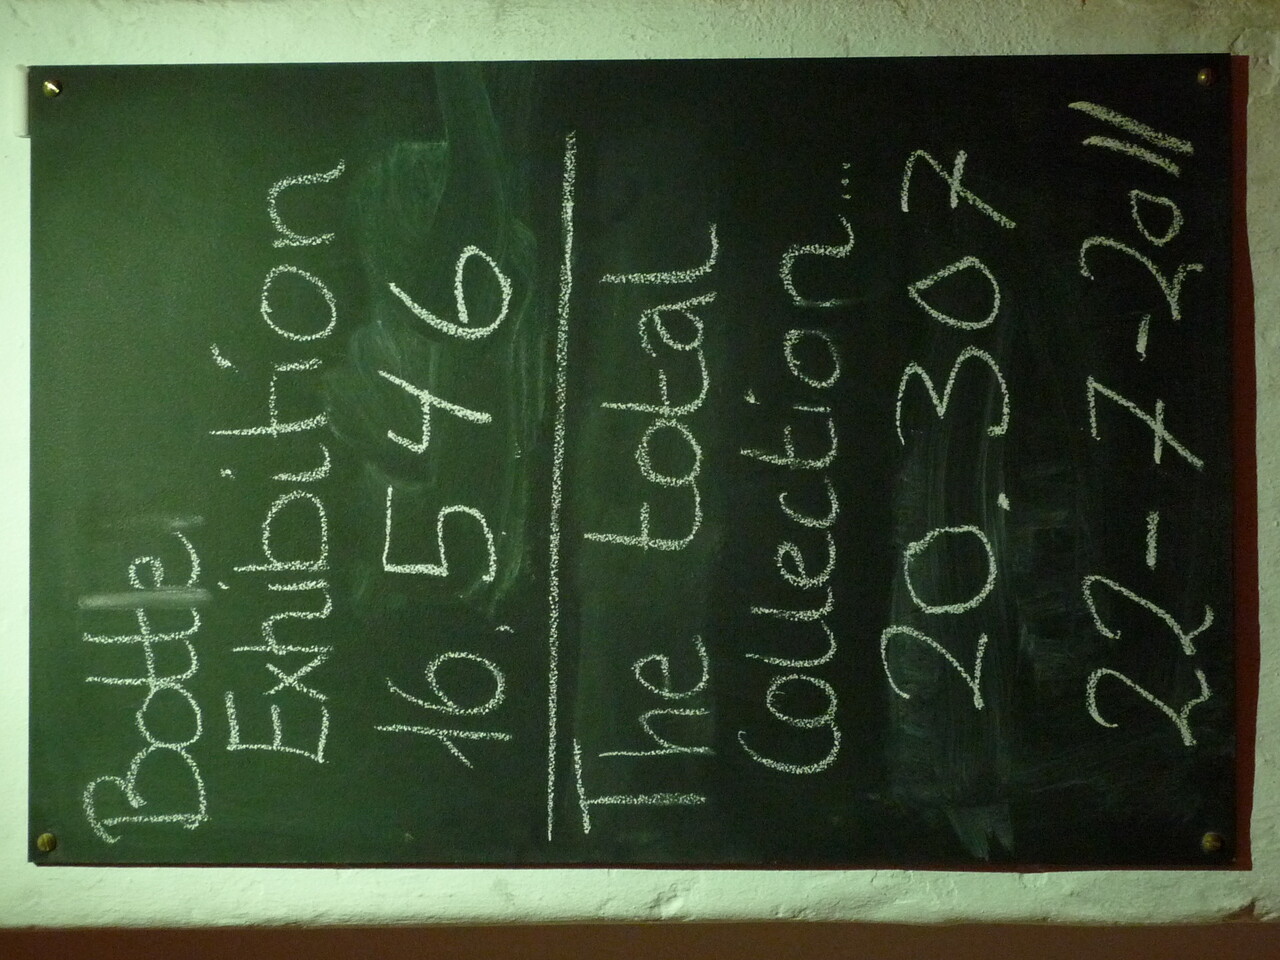 Bottle
Exhibition
16.546
The total
Collection...
20.307
22-7-2011